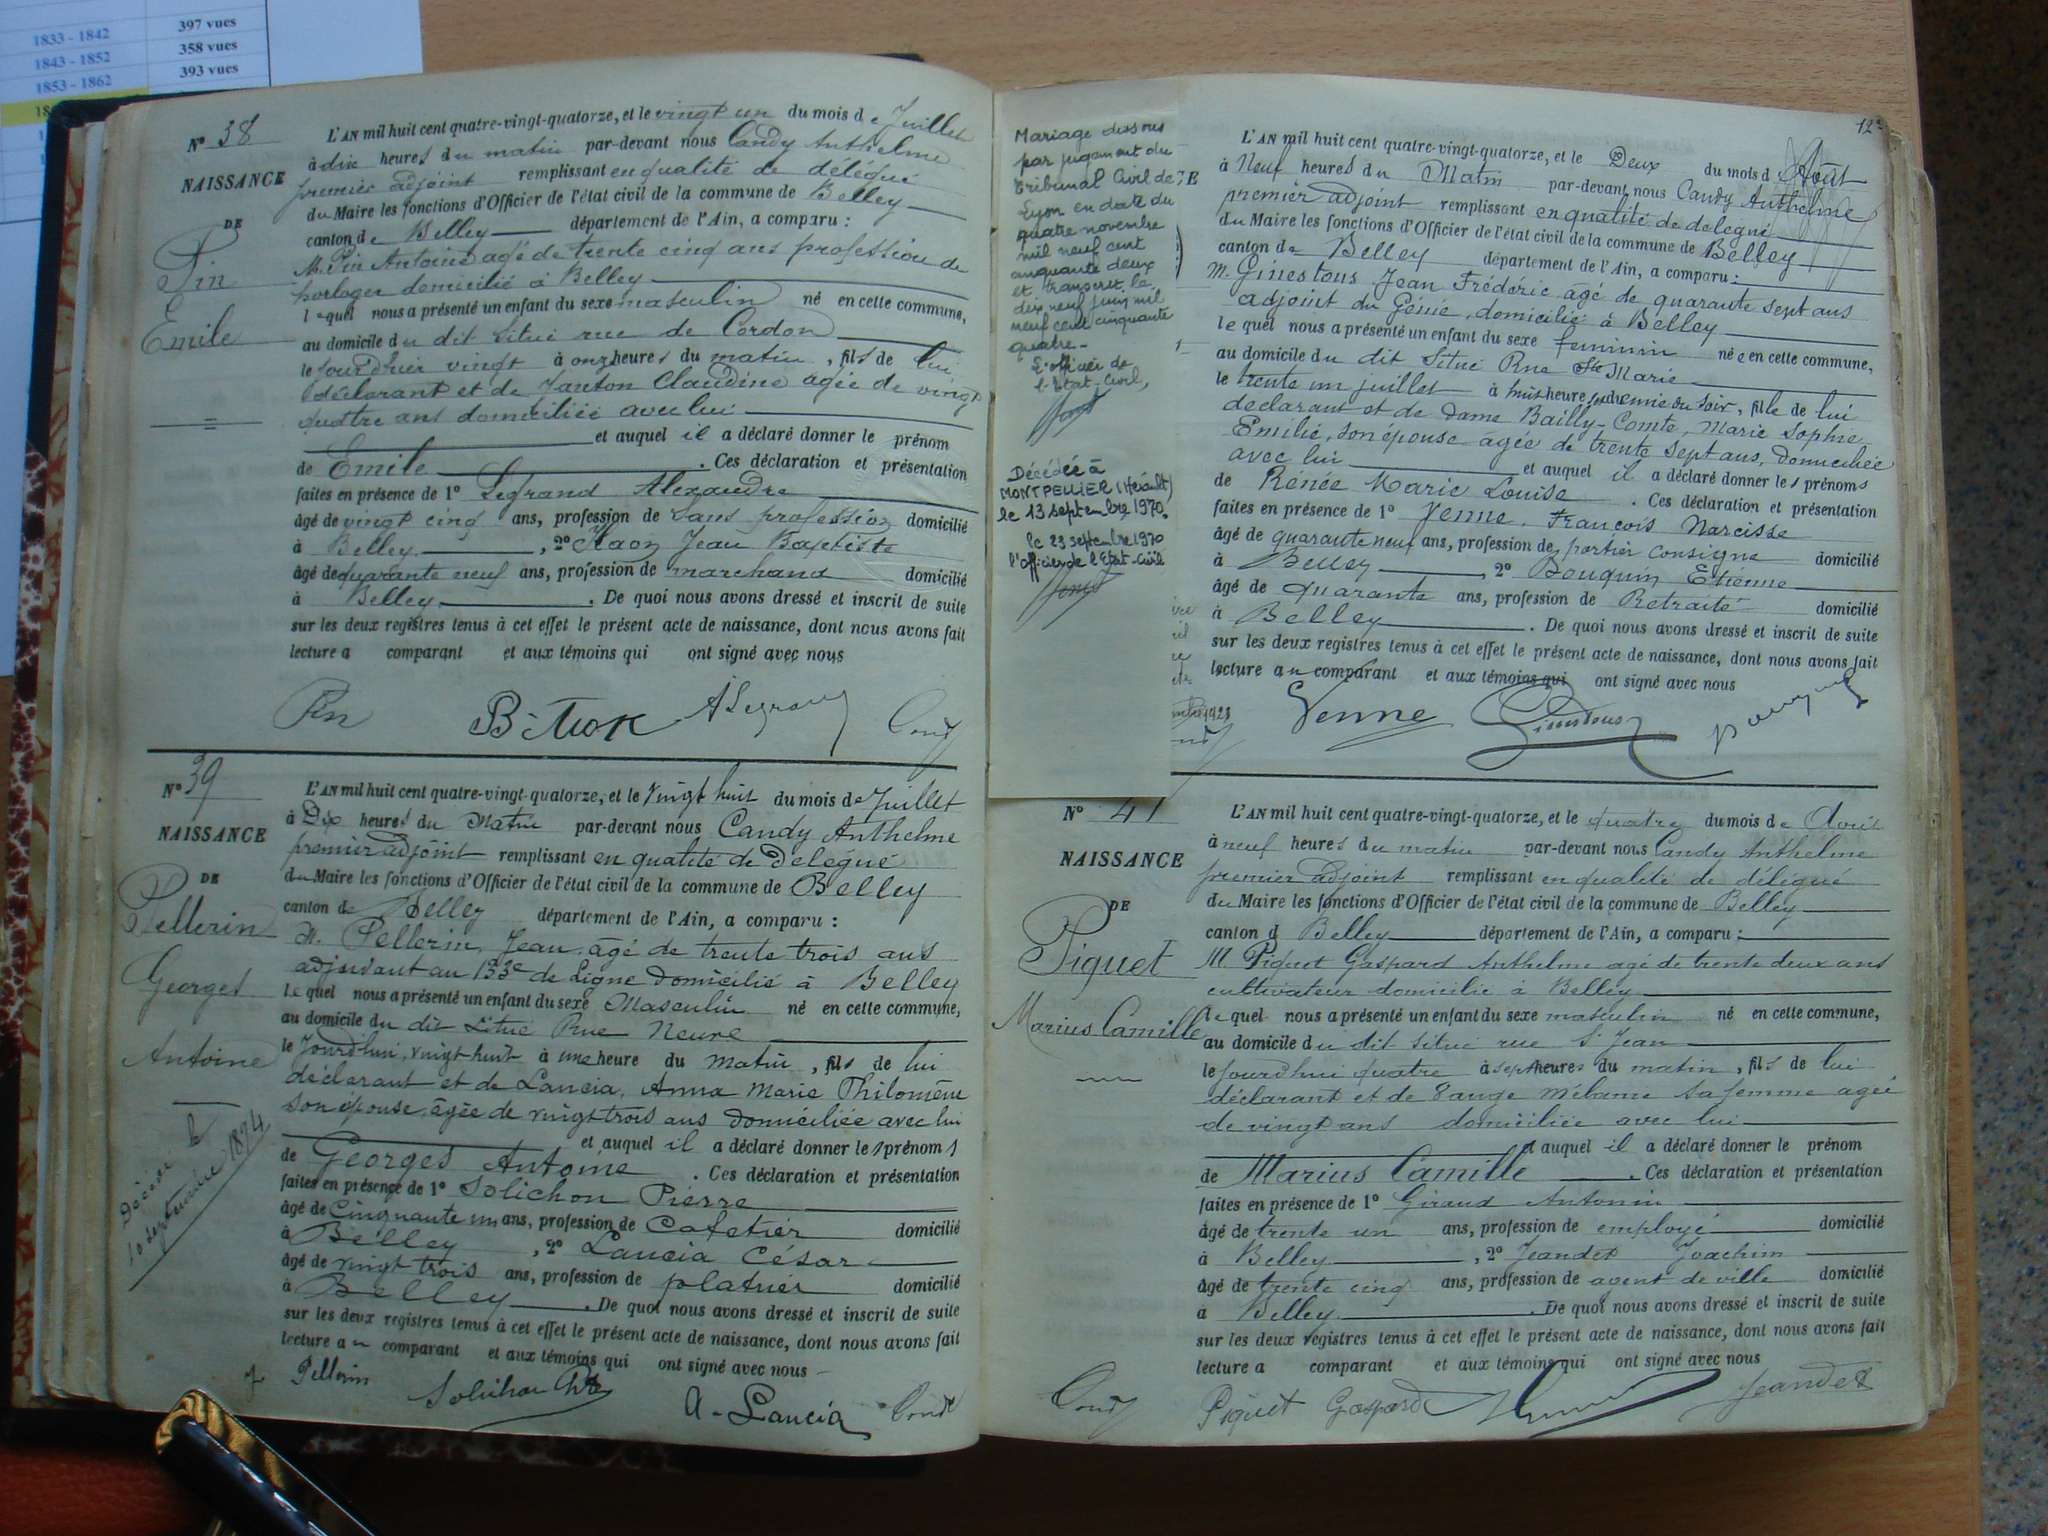 397 vues
1833 - 1842
358 vues
1843 - 1852
393 vues
1853 - 1862
N° 38
NAISSANCE
DE
Pin
Emile
L'AN mil huit cent quatre-vingt-quatorze, et le vingt un du mois de Juillet
à dix heures du matin par-devant nous Candy Anthelme
premier adjoint remplissant en qualité de délégué
du Maire les fonctions d'Officier de l'état civil de la commune de Belley
canton de Belley département de l'Ain, a comparu :
M. Pin Antoine agé de trente cinq ans profession de
horloger domicilié à Belley
lequel nous a présenté un enfant du sexe masculin né en cette commune,
au domicile du dit situé rue de Cordon
le jourd'hier vingt à onze heures du matin, fils de lui
déclarant et de Janton Claudine agée de vingt
quatre ans domiciliée avec lui
et auquel il a déclaré donner le prénom
de Emile. Ces déclaration et présentation
faites en présence de 1° Legrand Alexandre
âgé de vingt cinq ans, profession de sans profession domicilié
à Belley, 2° Jean Baptiste
âgé de quarante neuf ans, profession de marchand domicilié
à Belley. De quoi nous avons dressé et inscrit de suite
sur les deux registres tenus à cet effet le présent acte de naissance, dont nous avons fait
lecture a comparant et aux témoins qui ont signé avec nous
Pin ALegrand Candy
N° 39
NAISSANCE
DE
Pellerin
Georges
Antoine
Décédé le
10 septembre 1894
L'AN mil huit cent quatre-vingt-quatorze, et le vingt huit du mois de Juillet
à Dix heures du Matin par-devant nous Candy Anthelme
premier adjoint remplissant en qualité de Délégué
du Maire les fonctions d'Officier de l'état civil de la commune de Belley
canton de Belley département de l'Ain, a comparu :
M. Pellerin, Jean, agé de trente trois ans
adjudant au 133e de Ligne domicilié à Belley
lequel nous a présenté un enfant du sexe Masculin né en cette commune,
au domicile du dit Situé Rue Neuve
le Jourd'hui, vingt huit à une heure du matin, fils de lui
déclarant et de Lancia, Anna Marie Philomène
son épouse, âgée de vingt trois ans domiciliée avec lui
et auquel il a déclaré donner les prénoms
de Georges Antoine. Ces déclaration et présentation
faites en présence de 1° Solichon Pierre
âgé de Cinquante un ans, profession de Cafetier domicilié
à Belley, 2° Lancia César
âgé de vingt trois ans, profession de platrier domicilié
à Belley. De quoi nous avons dressé et inscrit de suite
sur les deux registres tenus à cet effet le présent acte de naissance, dont nous avons fait
lecture au comparant et aux témoins qui ont signé avec nous
J Pellerin Solichon A. Lancia Candy
Mariage dissous
par jugement du
Tribunal Civil de
Lyon en date du
quatre novembre
mil neuf cent
cinquante deux
et transcrit le
dix neuf juin mil
neuf cent cinquante
quatre.
L'officier de
l'Etat-Civil,
Décédée à
MONTPELLIER (Hérault)
le 13 septembre 1970.
le 23 septembre 1970
l'officier de l'Etat-Civil
L'AN mil huit cent quatre-vingt-quatorze, et le Deux du mois d Août
à Neuf heures du Matin par-devant nous Candy Anthelme
premier adjoint remplissant en qualité de délégué
du Maire les fonctions d'Officier de l'état civil de la commune de Belley
canton de Belley département de l'Ain, a comparu :
M. Ginestous Jean Frédéric agé de quarante sept ans
adjoint du Génie, domicilié à Belley
lequel nous a présenté un enfant du sexe féminin née en cette commune,
au domicile du dit Situé Rue Ste Marie
le trente un juillet à huit heures et demie du soir, fille de lui
déclarant et de Dame Bailly-Comte, Marie Sophie
Emilie, son épouse agée de trente sept ans, domiciliée
avec lui et auquel il a déclaré donner les prénoms
de Rénée Marie Louise. Ces déclaration et présentation
faites en présence de 1° Venne, François Narcisse
âgé de quarante neuf ans, profession de portier consigne domicilié
à Belley, 2° Bouquin Etienne
âgé de quarante ans, profession de Retraité domicilié
à Belley. De quoi nous avons dressé et inscrit de suite
sur les deux registres tenus à cet effet le présent acte de naissance, dont nous avons fait
lecture au comparant et aux témoins qui ont signé avec nous
Venne Ginestous Bouquin
N° 41
NAISSANCE
DE
Piguet
Marius Camille
L'AN mil huit cent quatre-vingt-quatorze, et le quatre du mois de Août
à neuf heures du matin par-devant nous Candy Anthelme
premier adjoint remplissant en qualité de délégué
du Maire les fonctions d'Officier de l'état civil de la commune de Belley
canton d Belley département de l'Ain, a comparu :
M. Piguet Gaspard Anthelme agé de trente deux ans
cultivateur domicilié à Belley
lequel nous a présenté un enfant du sexe masculin né en cette commune,
au domicile du dit situé rue St Jean
le jourd'hui quatre à sept heures du matin, fils de lui
déclarant et de Mélanie sa femme agée
de vingt ans domiciliée avec lui
et auquel il a déclaré donner le prénom
de Marius Camille. Ces déclaration et présentation
faites en présence de 1° Giraud Antonin
âgé de trente un ans, profession de employé domicilié
à Belley, 2° Jeandet Joachim
âgé de trente cinq ans, profession de agent de ville domicilié
à Belley. De quoi nous avons dressé et inscrit de suite
sur les deux registres tenus à cet effet le présent acte de naissance, dont nous avons fait
lecture a comparant et aux témoins qui ont signé avec nous
Candy Piguet Gaspard Jeandet